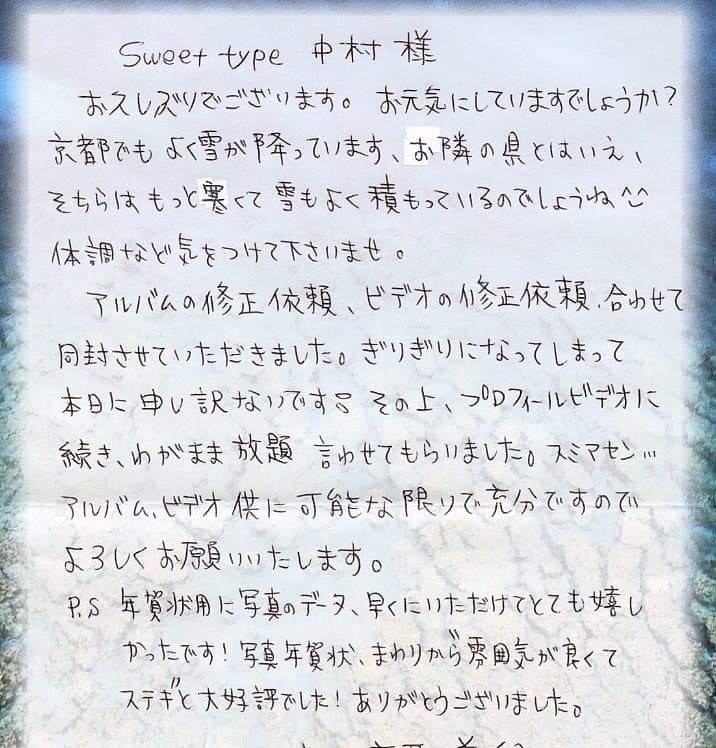 Sweet type 中村 様
お久しブリでございます。お元気にしていますでしょうか?
京都でもよく雪が降っています、お隣の県とはいえ、
そちらはもっと寒くて雪もよく積もっているのでしょうね^^
体調など気をつけて下さいませ。
アルバムの修正依頼、ビデオの修正依頼、合わせて
同封させていただきました。ぎりぎりになってしまって
本日に申し訳ないです。その上、プロフィールビデオに
続き、わがまま放題 言わせてもらいました。スミマセン…
アルバム、ビデオ供に可能な限りで充分ですので
よろしくお願いいたします。
P.S 年賀状用に写真のデータ、早くにいただけてとても嬉し
かったです!写真年賀状、まわりから雰囲気が良くて
ステキ"と大好評でした!ありがとうございました。